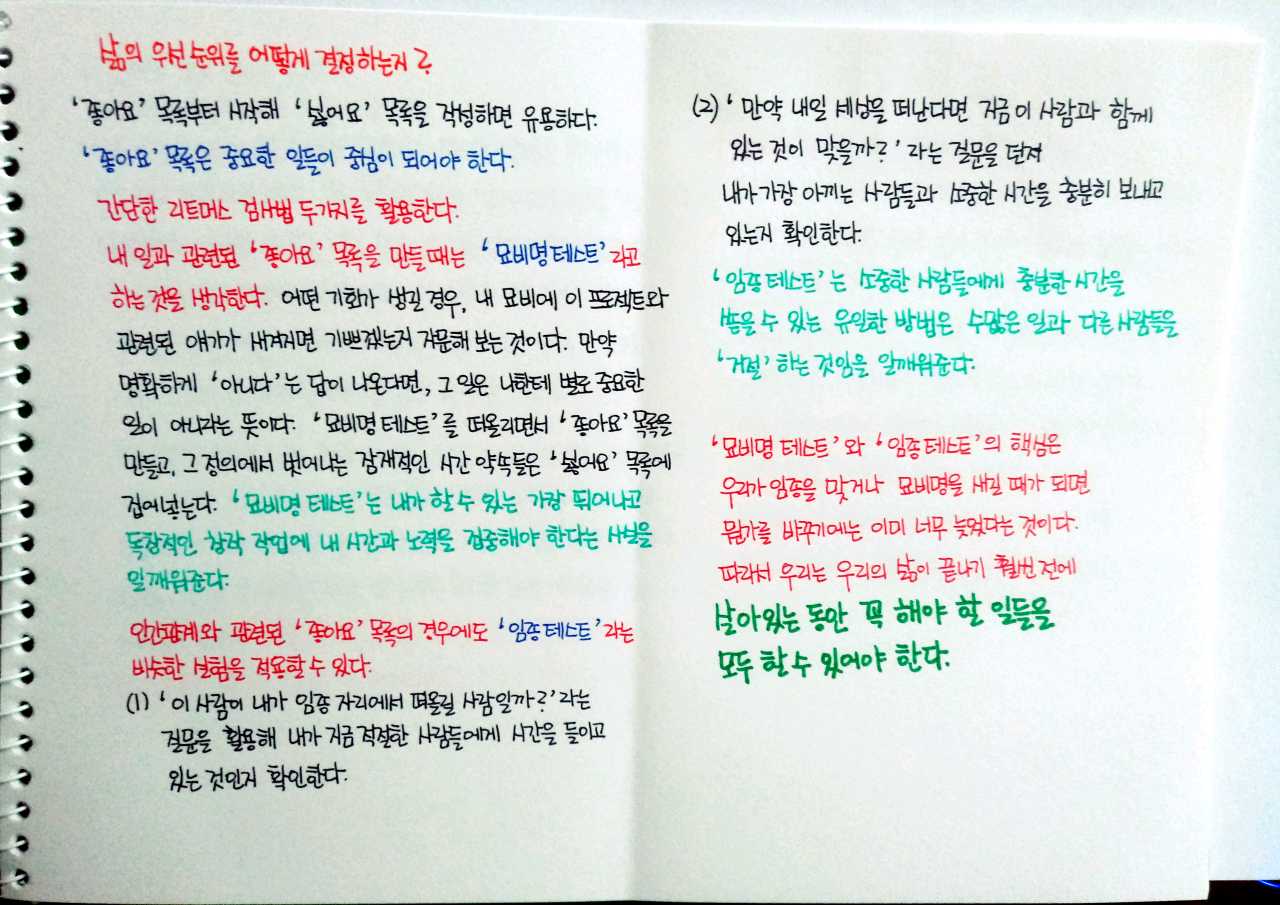 삶의 우선순위를 어떻게 결정하는지?
'좋아요' 목록부터 시작해 '싫어요' 목록을 작성하면 유용하다.
'좋아요' 목록은 중요한 일들이 중심이 되어야 한다.
간단한 리트머스 검사법 두가지를 활용한다.
내 일과 관련된 '좋아요' 목록을 만들 때는 '묘비명 테스트'라고
하는 것을 생각한다. 어떤 기회가 생길 경우, 내 묘비에 이 프로젝트와
관련된 얘기가 새겨지면 기쁘겠는지 자문해 보는 것이다. 만약
명확하게 '아니다'는 답이 나온다면, 그 일은 나한테 별로 중요한
일이 아니라는 뜻이다. '묘비명 테스트'를 떠올리면서 '좋아요' 목록을
만들고, 그 정의에서 벗어나는 잠재적인 시간 약속들은 '싫어요' 목록에
집어넣는다. '묘비명 테스트'는 내가 할 수 있는 가장 뛰어나고
독창적인 창작 작업에 내 시간과 노력을 집중해야 한다는 사실을
일깨워준다.
인간관계와 관련된 '좋아요' 목록의 경우에도 '임종 테스트'라는
비슷한 실험을 적용할 수 있다.
(1) '이 사람이 내가 임종 자리에서 떠올릴 사람일까?'라는
질문을 활용해 내가 지금 적절한 사람들에게 시간을 들이고
있는 것인지 확인한다.
(2) '만약 내일 세상을 떠난다면 지금 이 사람과 함께
있는 것이 맞을까?'라는 질문을 던져
내가 가장 아끼는 사람들과 소중한 시간을 충분히 보내고
있는지 확인한다.
'임종 테스트'는 소중한 사람들에게 충분한 시간을
쏟을 수 있는 유일한 방법은 수많은 일과 다른 사람들을
'거절'하는 것임을 일깨워준다.
'묘비명 테스트'와 '임종 테스트'의 핵심은
우리가 임종을 맞거나 묘비명을 새길 때가 되면
뭔가를 바꾸기에는 이미 너무 늦었다는 것이다.
따라서 우리는 우리의 삶이 끝나기 훨씬 전에
살아있는 동안 꼭 해야 할 일들을
모두 할 수 있어야 한다.